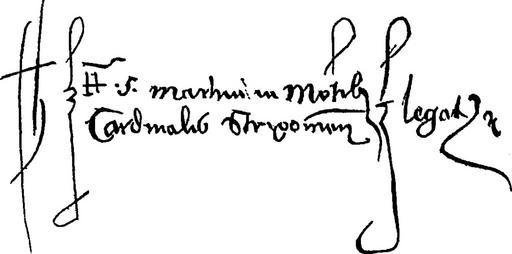 tt. s. martini in Motib
Cardinalis Strigonien
legat